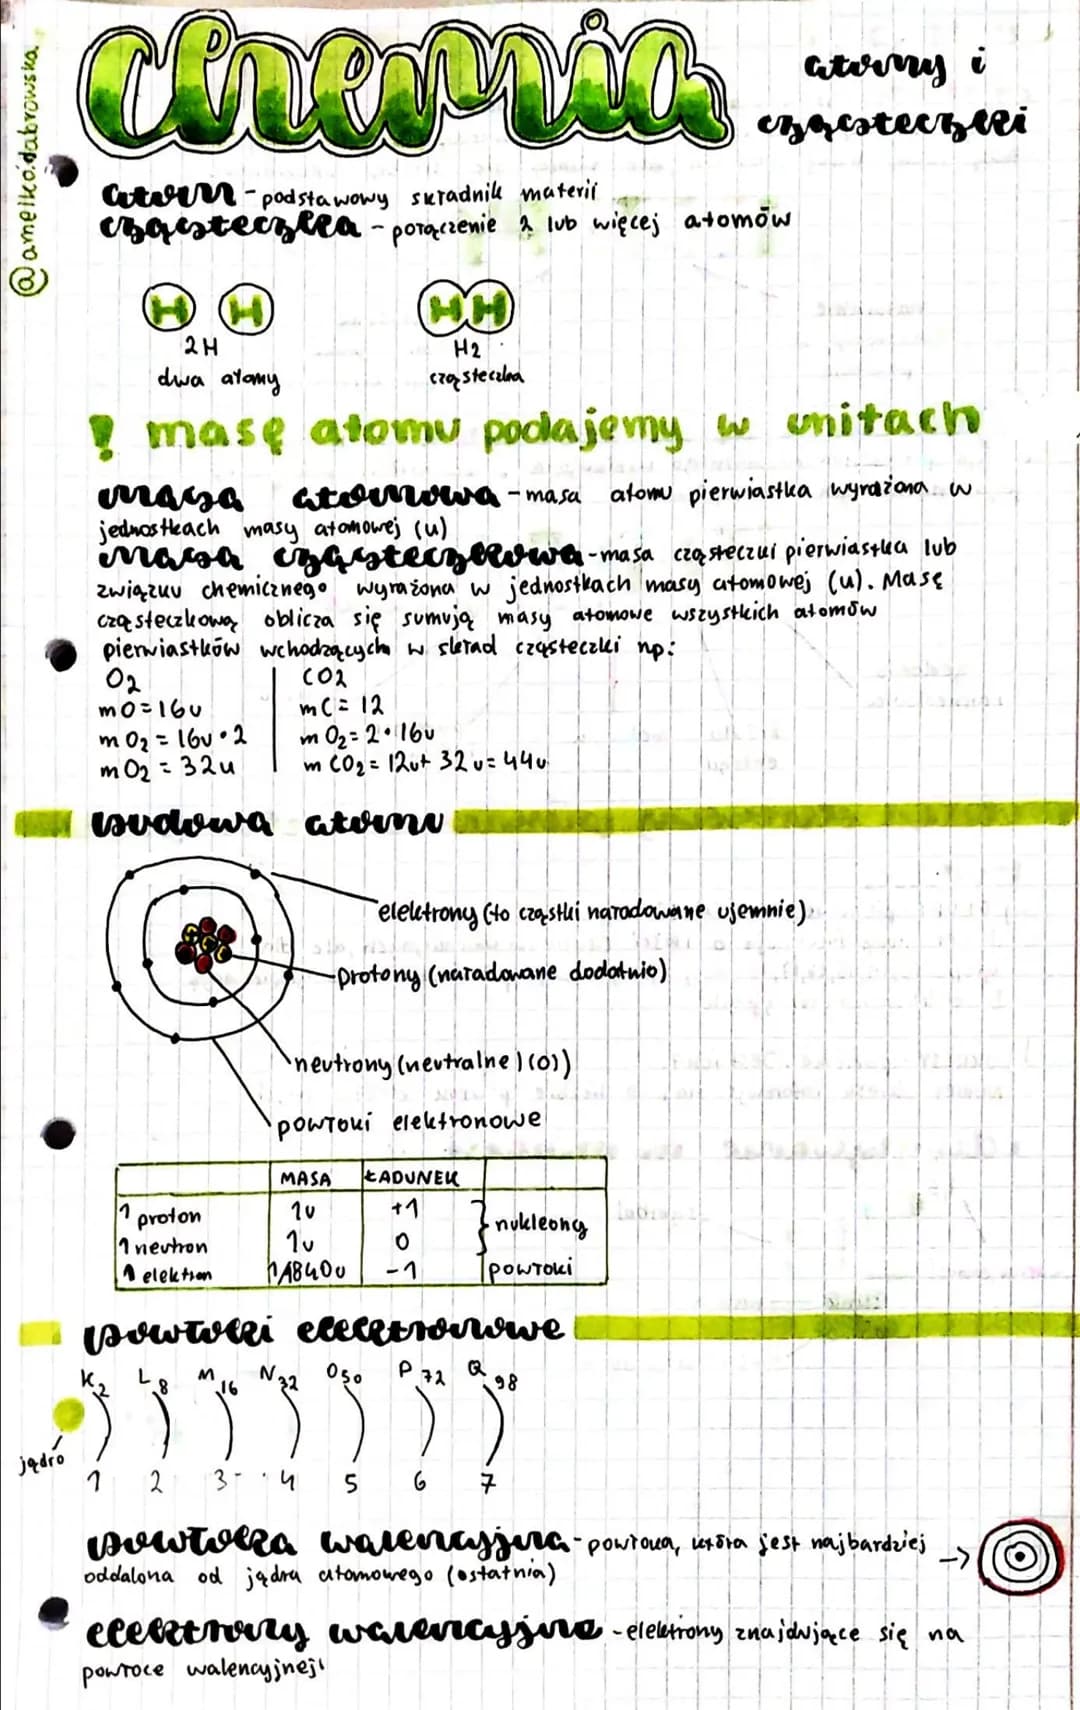 chemia
atomy i
cząsteczki
@amelko.dabrowska
atom - podstawowy składnik materii
cząsteczka - połączenie 2 lub więcej atomów
H H HH
2H H2
dwa atomy cząsteczka
! masę atomu podajemy w unitach
masa atomowa - masa atomu pierwiastka wyrażona w
jednostkach masy atomowej (u)
masa cząsteczkowa - masa cząsteczki pierwiastka lub
związku chemicznego wyrażona w jednostkach masy atomowej (u). Masę
cząsteczkową oblicza się sumują masy atomowe wszystkich atomów
pierwiastków wchodzących w skład cząsteczki np:
O2
mO=16u
mO2=16u·2
mO2=32u
CO2
mC=12
mO2=2·16u
mCO2=12u+32u=44u
budowa atomu
elektrony (to cząstki naładowane ujemnie)
protony (naładowane dodatnio)
neutrony (neutralne)(0))
powłoki elektronowe
MASA ŁADUNEK
1 proton 1u +1 nukleony
1 neutron 1u 0
1 elektron 1/1840u -1 powłoki
powłoki elektronowe
K2 L8 M16 N32 O50 P72 Q98
jądro
1 2 3 4 5 6 7
powłoka walencyjna - powłoka, która jest najbardziej ->
oddalona od jądra atomowego (ostatnia)
elektrony walencyjne - elektrony znajdujące się na
powłoce walencyjnej